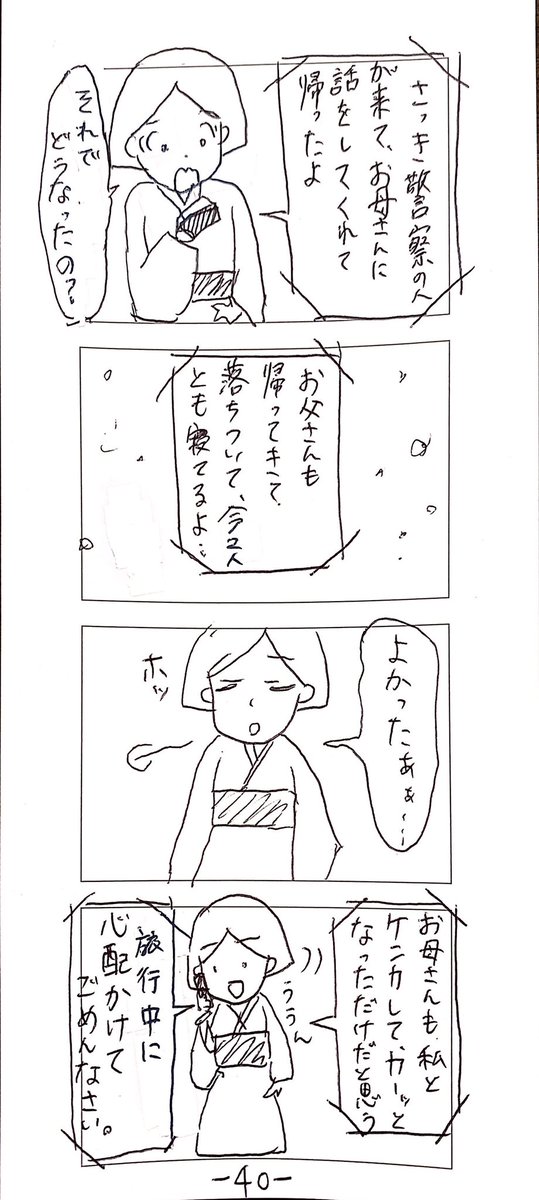 さっき警察の人
が来て、お母さんに
話をしてくれて
帰ったよ
それで
どうなったの?!
お父さんも
帰ってきて
落ちついて、今2人
とも寝てるよ…
よかったぁぁ〜
ホッ
お母さんも私と
ケンカして、カーッと
なっただけだと思う
ううん
旅行中に
心配かけて
ごめんなさい。
-40-